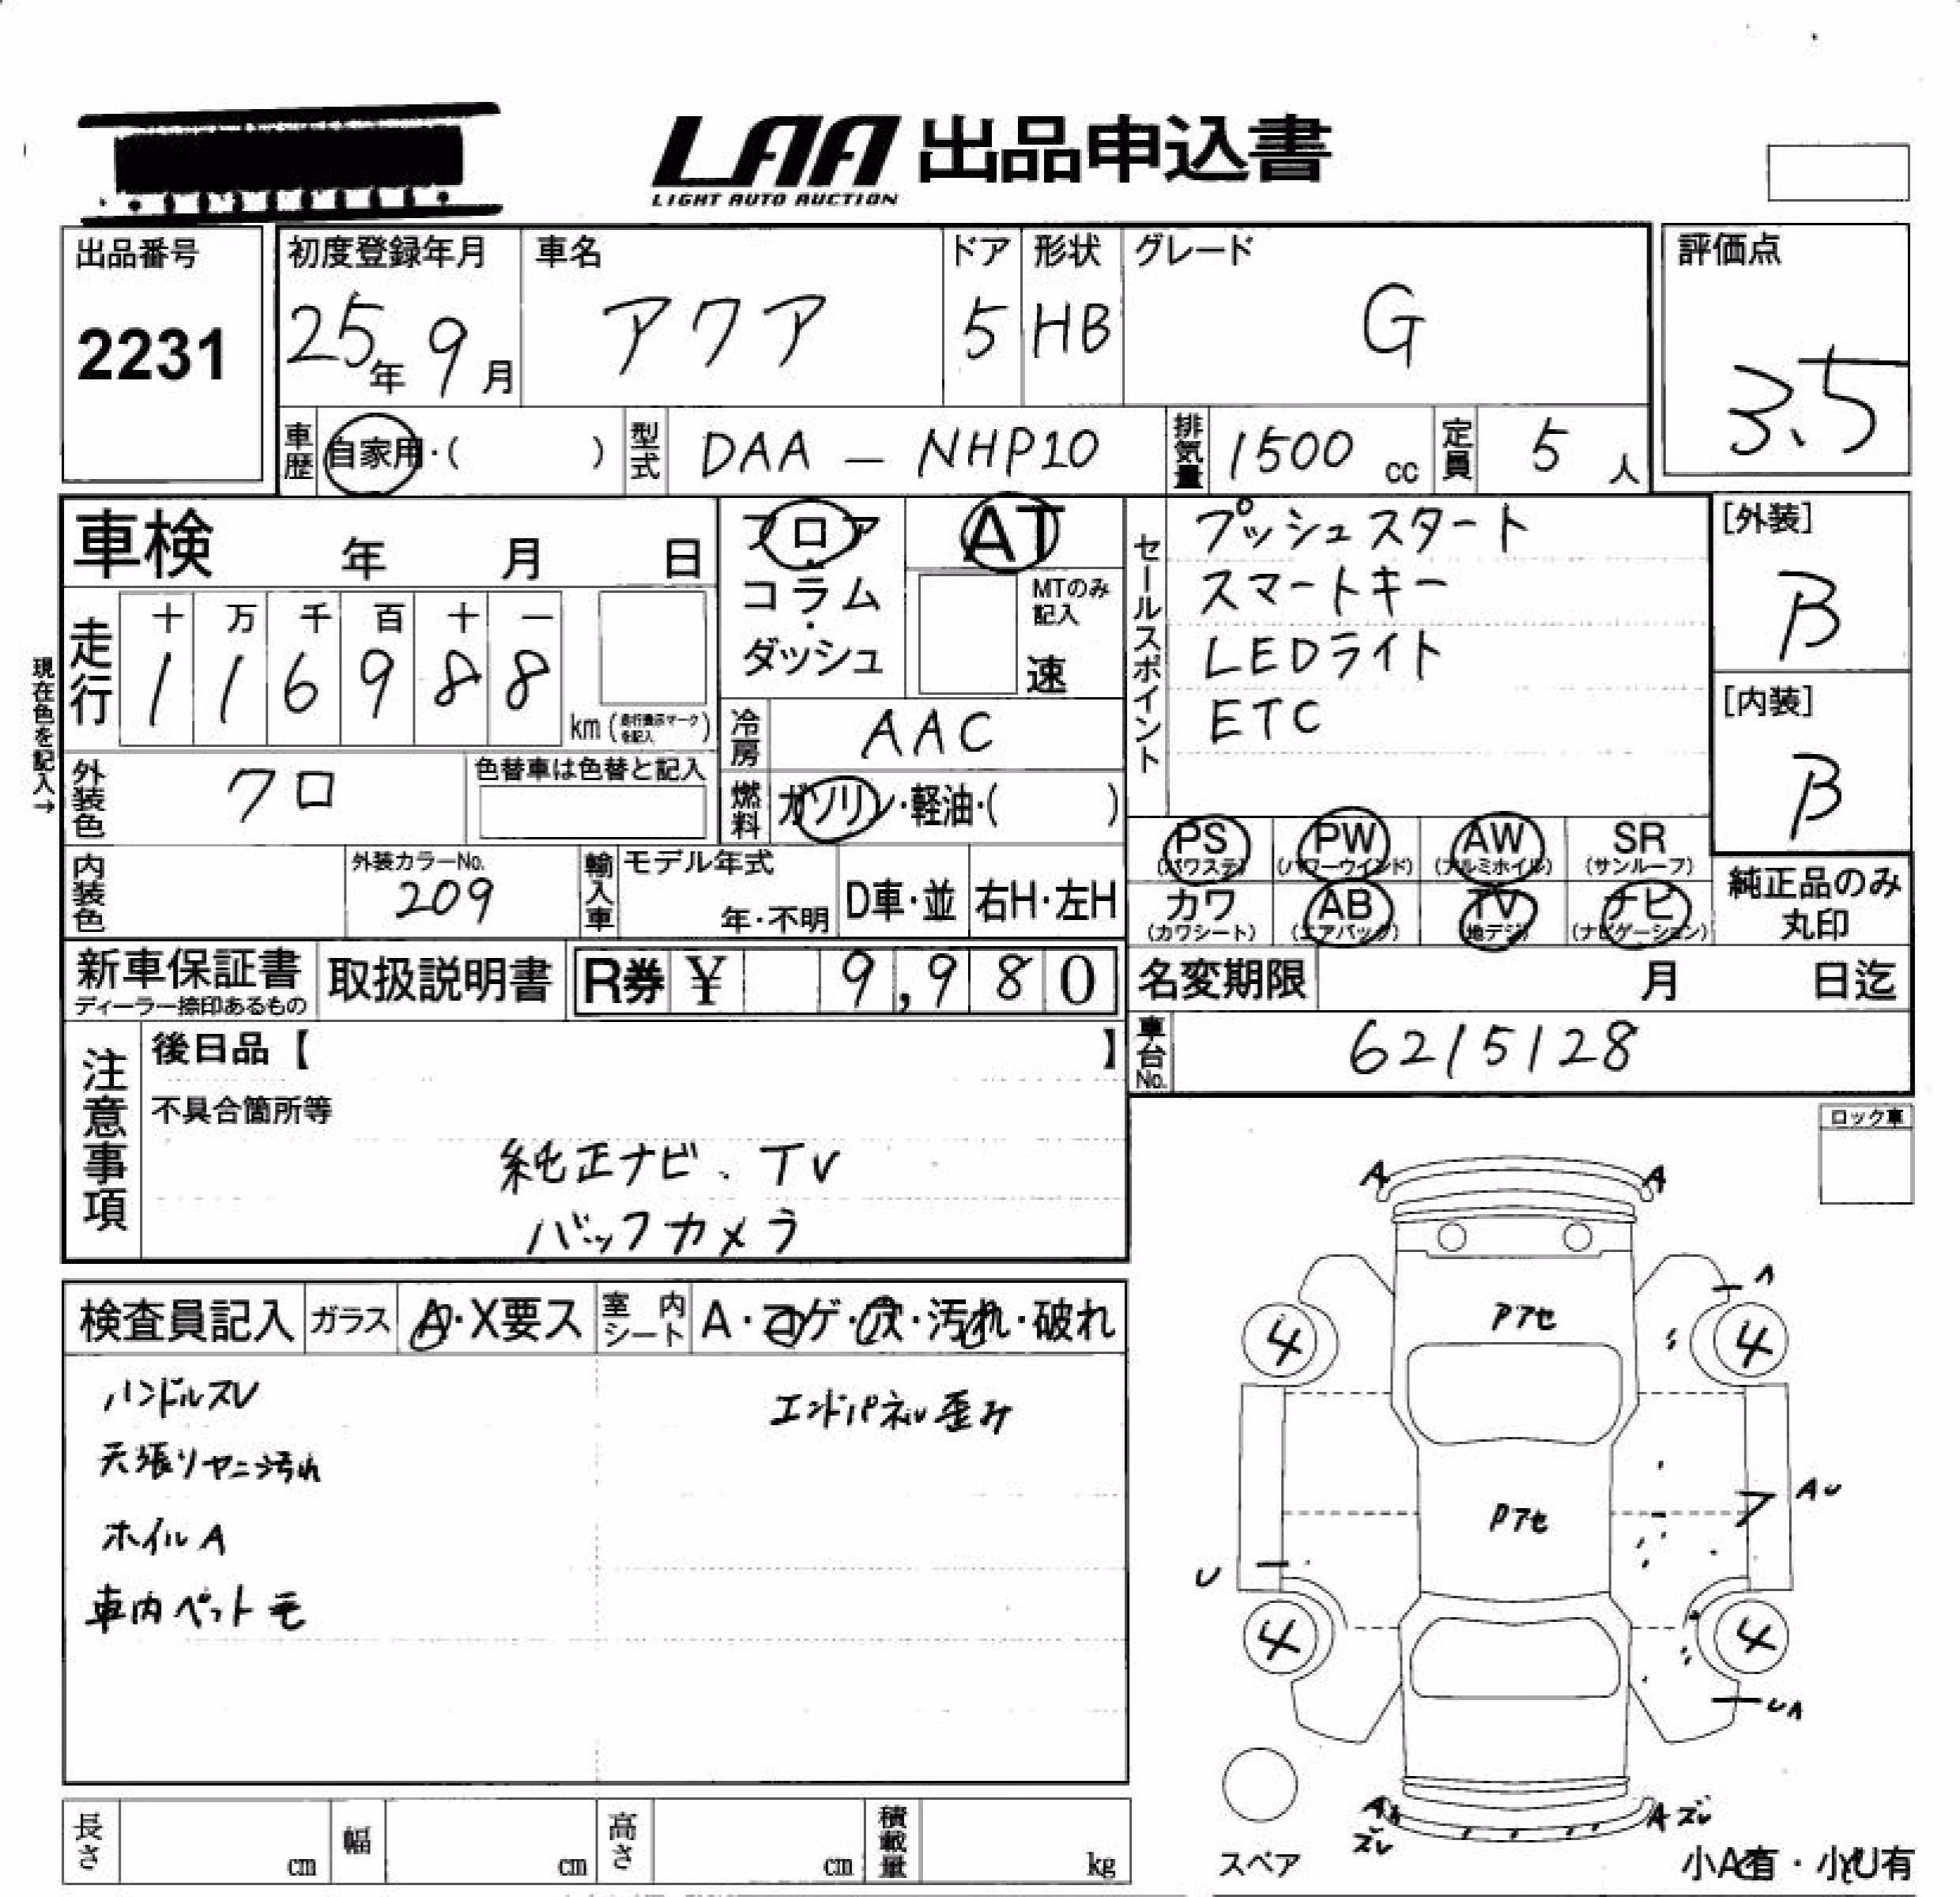 LAA 出品申込書
LIGHT AUTO AUCTION
出品番号
2231
初度登録年月
25年 9月
車名
アクア
ドア
5
形状
HB
グレード
G
評価点
3.5
車歴
自家用・( )
型式
DAA - NHP10
排気量
1500 cc
定員
5 人
車検 年 月 日
現在色を記入→
走行
十 万 千 百 十 一
1 1 6 9 8 8
km (走行表示マークを記入)
フロア
コラム
・
ダッシュ
AT
MTのみ
記入
速
冷房
AAC
燃料
ガソリン・軽油・( )
セールスポイント
プッシュスタート
スマートキー
LEDライト
ETC
[外装]
B
[内装]
B
外装色
クロ
色替車は色替と記入
内装色
外装カラーNo.
209
輸入車
モデル年式
年・不明
D車・並
右H・左H
PS
(パワステ)
PW
(パワーウインド)
AW
(アルミホイル)
SR
(サンルーフ)
カワ
(カワシート)
AB
(エアバック)
TV
(地デジ)
ナビ
(ナビゲーション)
純正品のみ
丸印
新車保証書
ディーラー捺印あるもの
取扱説明書
R券 ¥ 9,980
名変期限 月 日迄
車台No.
6215128
注意事項
後日品【 】
不具合箇所等
純正ナビ.TV
バックカメラ
ロック車
検査員記入
ガラス
A・X要ス
室内シート
A・コゲ・穴・汚れ・破れ
ハンドルスレ
天張りヤニ汚れ
ホイルA
車内ペット毛
エンドパネル歪み
A A
A
Pアセ
4 4
Pアセ
AU
U
4 4
UA
A ズレ
A ズレ
スペア
小A有・小U有
長さ cm
幅 cm
高さ cm
積載量 kg